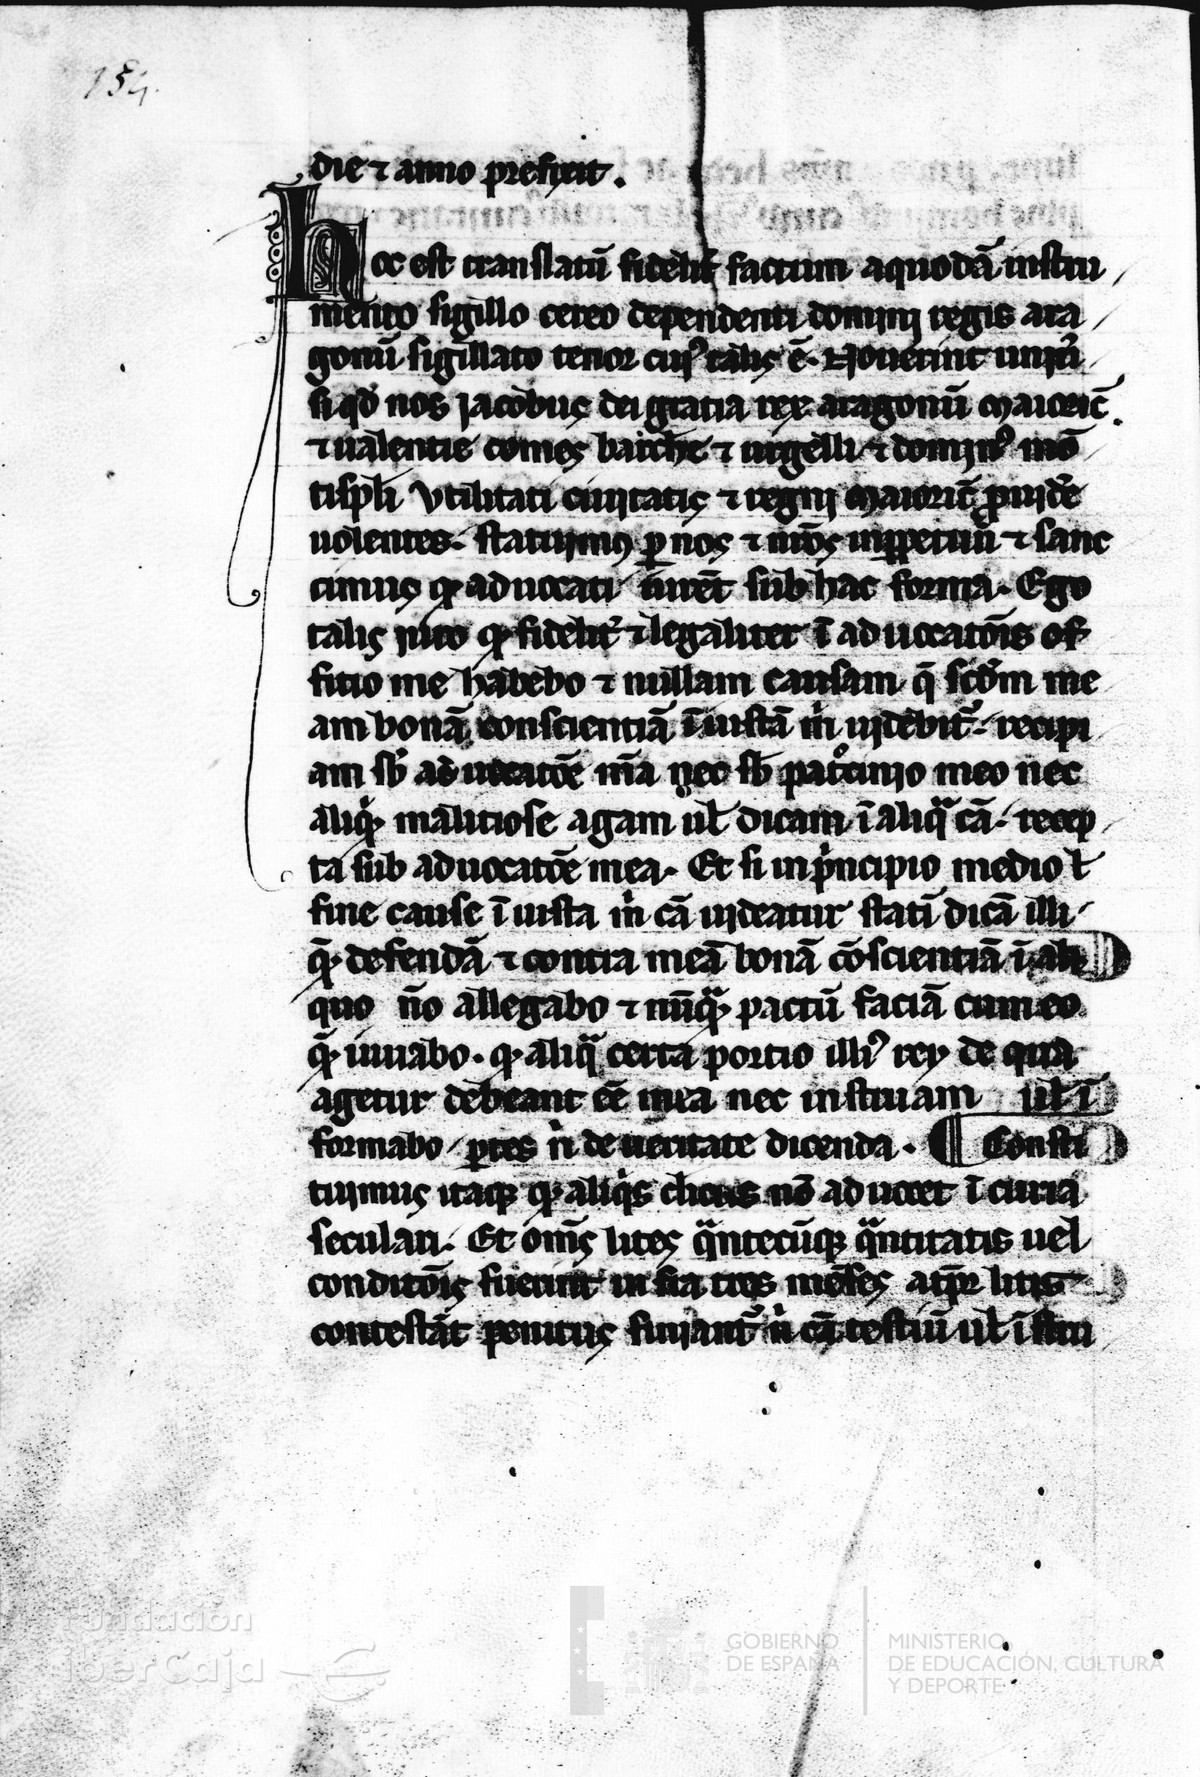 154.
die ⁊ anno prefixit.
hoc est translatū fidelit̄ factum aquodā instru
mento sigillo cereo dependenti domini regis ara
gonū sigillato tenor cuiꝰ talis ē. Nouerint uniūsi
si qd̄ nos Jacobus dei gratia rex aragonū maioric̄
⁊ ualentie comes barch̄e ⁊ urgelli ⁊ dominꝰ mō
tispl̄i Vtilitati ciuitatis ⁊ regni maioric̄ ꝓuidē
uolentes. statuimꝰ ꝑ nos ⁊ nr̄os inꝑpetuū ⁊ sanc
cimus ꝙ aduocati iurēt sub hac forma. Ego
talis iuro ꝙ fidelit̄ ⁊ legaliter ī aduocatōis of
fitio me habebo ⁊ nullam causam q̄ scd̄m me
am bonā conscientiā ī iustā m̄ uidebit̄. recipi
am sb̄ aduocatōe m̄a nec sb̄ pat̊cinio meo nec
aliq̄ malitiose agam ul̄ dicam ī aliq̄ cā. recep
ta sub aduocatōe mea. Et si in pͥncipio medio l̄
fine cause ī iusta m̄ cā uideatur statī dicā illi
q̄ defendā ⁊ contra meā bonā cōscientiā ī ali
quo n̄o allegabo ⁊ nūq̄ pactū faciā cum eo
q̄ iuuabo. ꝙ aliq̄ certa portio illiꝰ rei de qua
agetur debeant eē mea nec instruam ul̄ ī
formabo ꝑtes n̄ de ueritate dicenda. ¶ Consti
tuimus itaqꝫ ꝙ aliqͥs cl̄icus nō aduocet ī curia
seculari. Et om̄s lites q̄ntecūqꝫ q̄ntitatis uel
conditōis fuerint infra tres mēses a tp̄r litis
contestāt penitus finiant̄ n̄ cā testiū ul̄ ī stru
fundación
iberCaja
GOBIERNO
DE ESPAÑA
MINISTERIO
DE EDUCACIÓN, CULTURA
Y DEPORTE